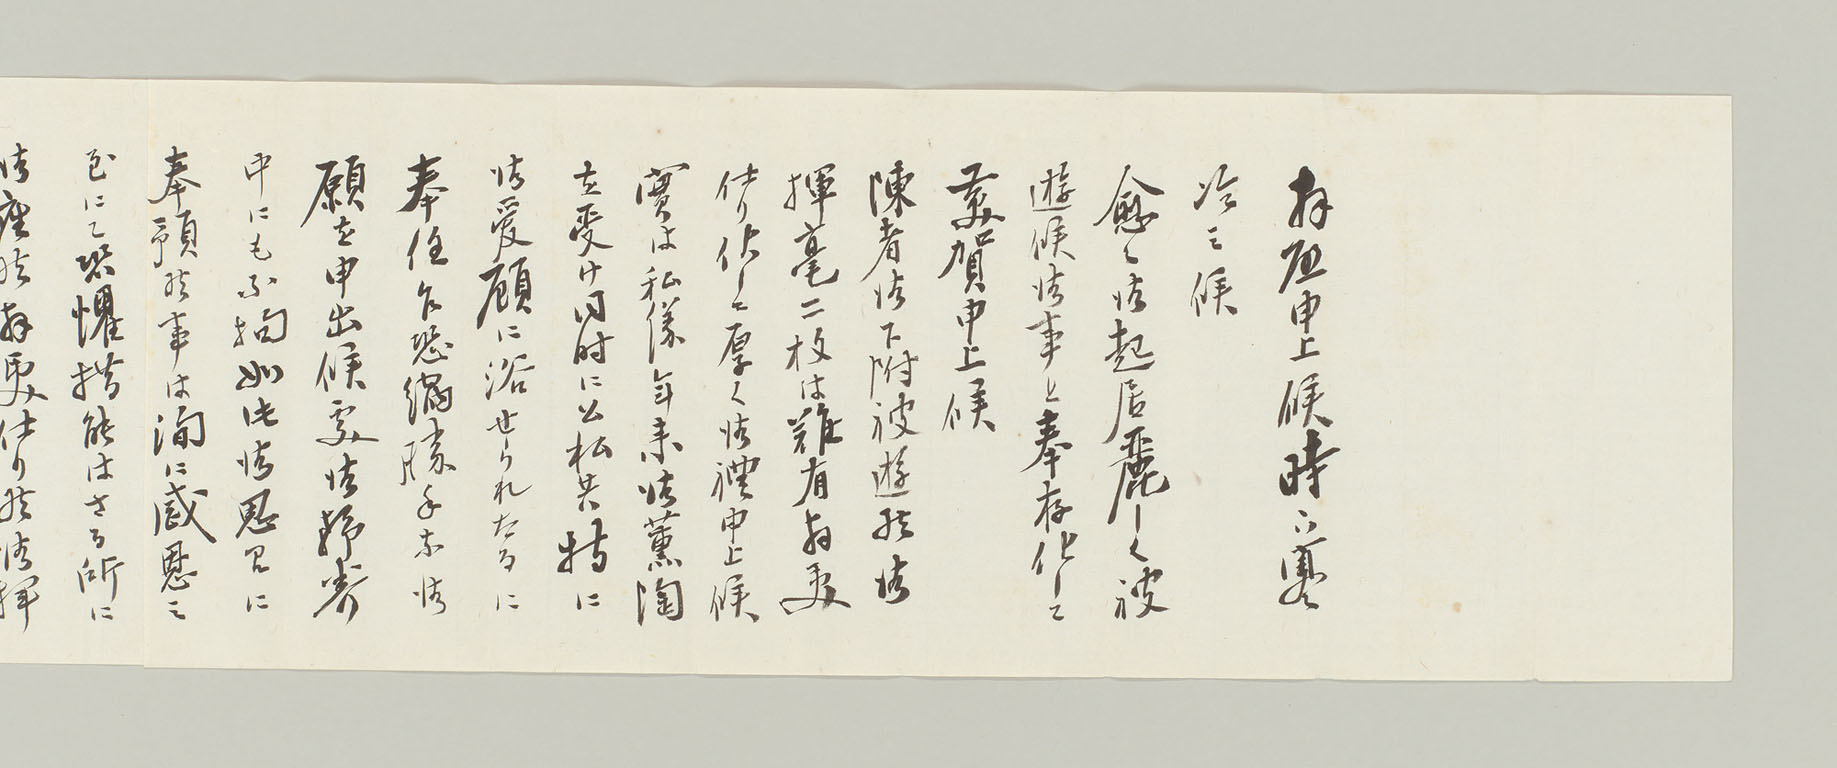 拝啓申上候時下寒
冷之候
愈々御起居麗しく被
遊候御事と奉存候化して
慶賀申上候
陳者御下附被遊候御
揮毫二枚は難有拝受
仕り化して厚く御禮申上候
實は私儀年来御薫陶
を受け同時に公私共特に
御愛顧に浴せられたるに
奉任乍恐縮勝手な御
願を申出候處御静養
中にも不拘如此御恩召に
奉預候事は洵に感恩之
至にて恐懼措能はさる所に
御座候拝受仕り候御揮